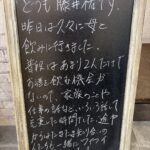 どうも藤井です。
昨日は久々に母と
飲みに行きました。
普段はあまり2人だけで
お酒を飲む機会が
ないので、家族のことや
仕事の話などいろいろ話して
充実した時間でした。途中
から
一緒に